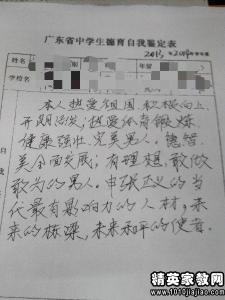 广东省中学生德育自我鉴定表
姓名
年龄
学校名
本人热爱祖国 积极向上
开朗活泼，热爱体育锻炼
健康强壮，完美男人。德智
美全面发展，有理想 敢做
敢为的男人。伸张正义的当
代最有影响力的人材，未
来的栋梁，未来和平的使者。
自
我
精英家教网
www.1010jiajiao.com